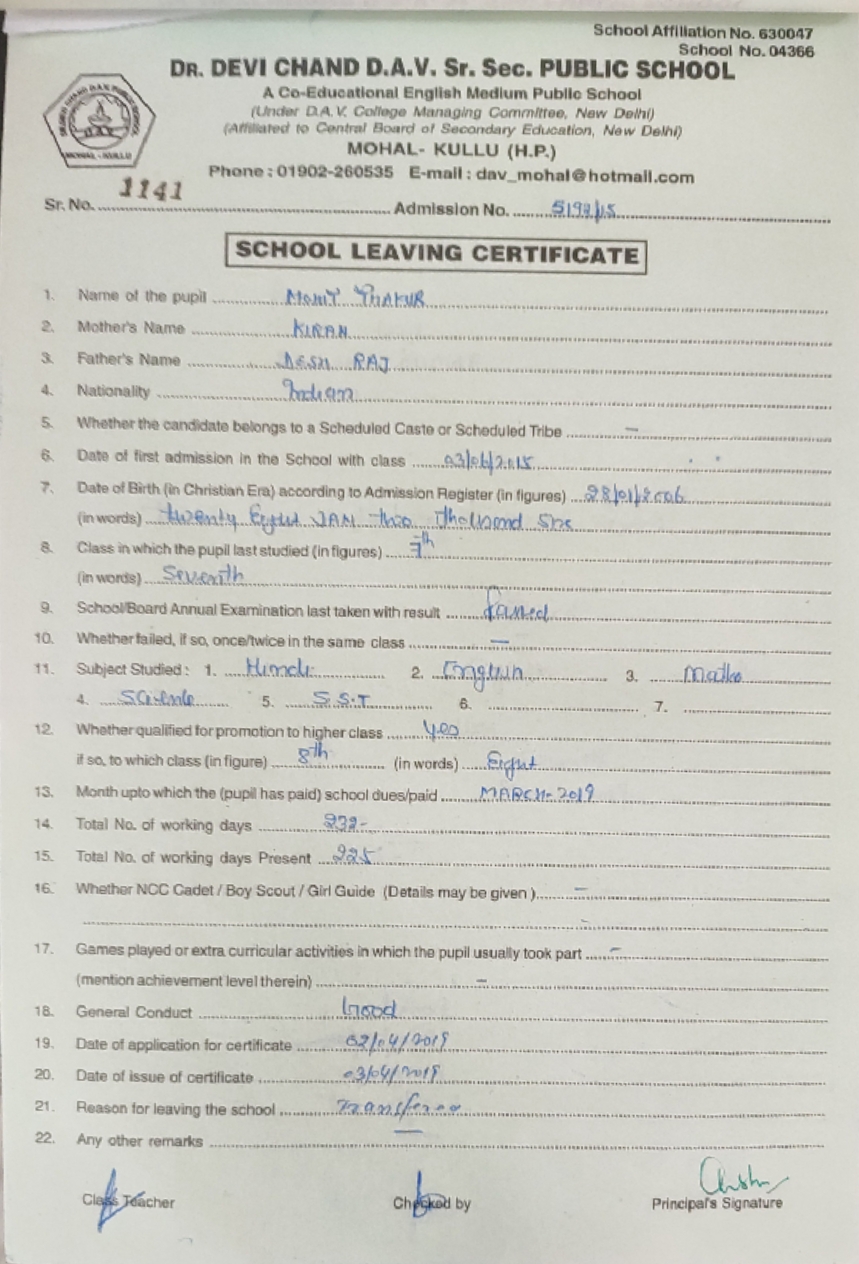 School Affiliation No. 630047
School No. 04366
DR. DEVI CHAND D.A.V. Sr. Sec. PUBLIC SCHOOL
A Co-Educational English Medium Public School
(Under D.A.V. College Managing Committee, New Delhi)
(Affiliated to Central Board of Secondary Education, New Delhi)
MOHAL- KULLU (H.P.)
Phone : 01902-260535 E-mail : dav_mohal@hotmail.com
Sr. No. 1141 Admission No. 5192/15
SCHOOL LEAVING CERTIFICATE
1. Name of the pupil MOHIT THAKUR
2. Mother's Name KIRAN
3. Father's Name DESH RAJ
4. Nationality Indian
5. Whether the candidate belongs to a Scheduled Caste or Scheduled Tribe –
6. Date of first admission in the School with class 03/06/2015
7. Date of Birth (in Christian Era) according to Admission Register (in figures) 28/01/2006
(in words) Twenty Eight JAN Two Thousand Six
8. Class in which the pupil last studied (in figures) 7th
(in words) Seventh
9. School/Board Annual Examination last taken with result Passed
10. Whether failed, if so, once/twice in the same class –
11. Subject Studied : 1. Hindi 2. English 3. Maths
4. Science 5. S.S.T 6. 7.
12. Whether qualified for promotion to higher class Yes
if so, to which class (in figure) 8th (in words) Eight
13. Month upto which the (pupil has paid) school dues/paid MARCH-2019
14. Total No. of working days 232-
15. Total No. of working days Present 225
16. Whether NCC Cadet / Boy Scout / Girl Guide (Details may be given ) –
17. Games played or extra curricular activities in which the pupil usually took part –
(mention achievement level therein) –
18. General Conduct Good
19. Date of application for certificate 02/04/2019
20. Date of issue of certificate 03/04/2019
21. Reason for leaving the school
22. Any other remarks –
Class Teacher Checked by Principal's Signature